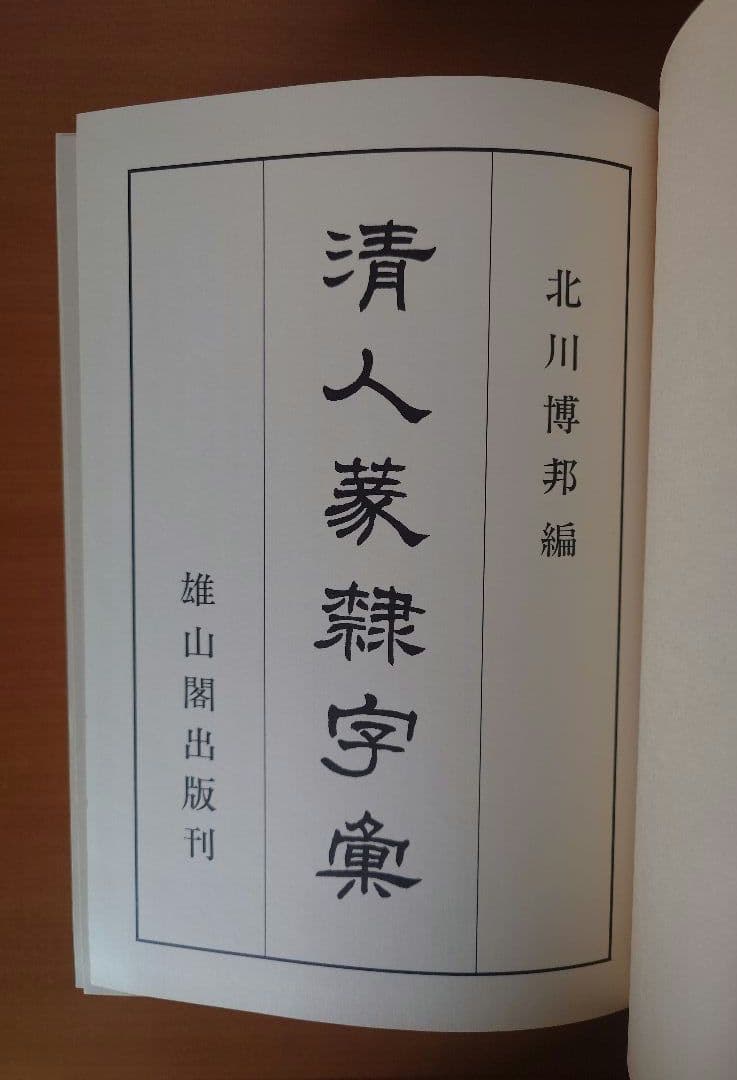 北川博邦編
清人篆隷字彙
雄山閣出版刊